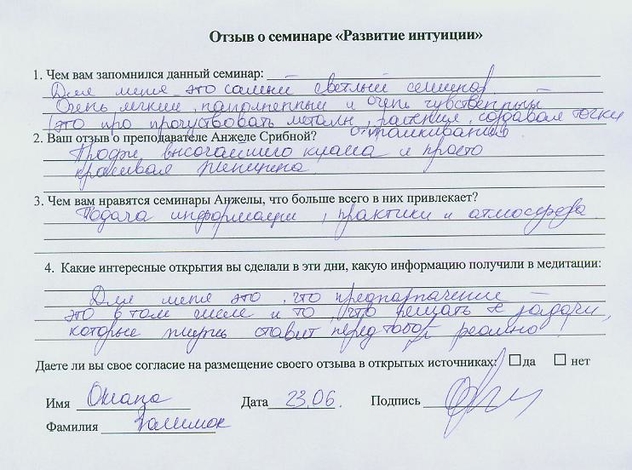 Отзыв о семинаре «Развитие интуиции»
1. Чем вам запомнился данный семинар:
Для меня это самый светлый семинар.
Очень легкий, наполненный и очень чувственный
(это про прочувствовать металы, растения, создавая точки
отталкивания)
2. Ваш отзыв о преподавателе Анжеле Срибной?
Профи высочайшего класса и просто
красивая женщина
3. Чем вам нравятся семинары Анжелы, что больше всего в них привлекает?
Подача информации, практики и атмосфера.
4. Какие интересные открытия вы сделали в эти дни, какую информацию получили в медитации:
Для меня это, что предназначение –
это в том числе и то, что решать те задачи,
которые жизнь ставит перед тобой реально.
Даете ли вы свое согласие на размещение своего отзыва в открытых источниках: да нет
Имя Оксана Дата 23.06. Подпись
Фамилия